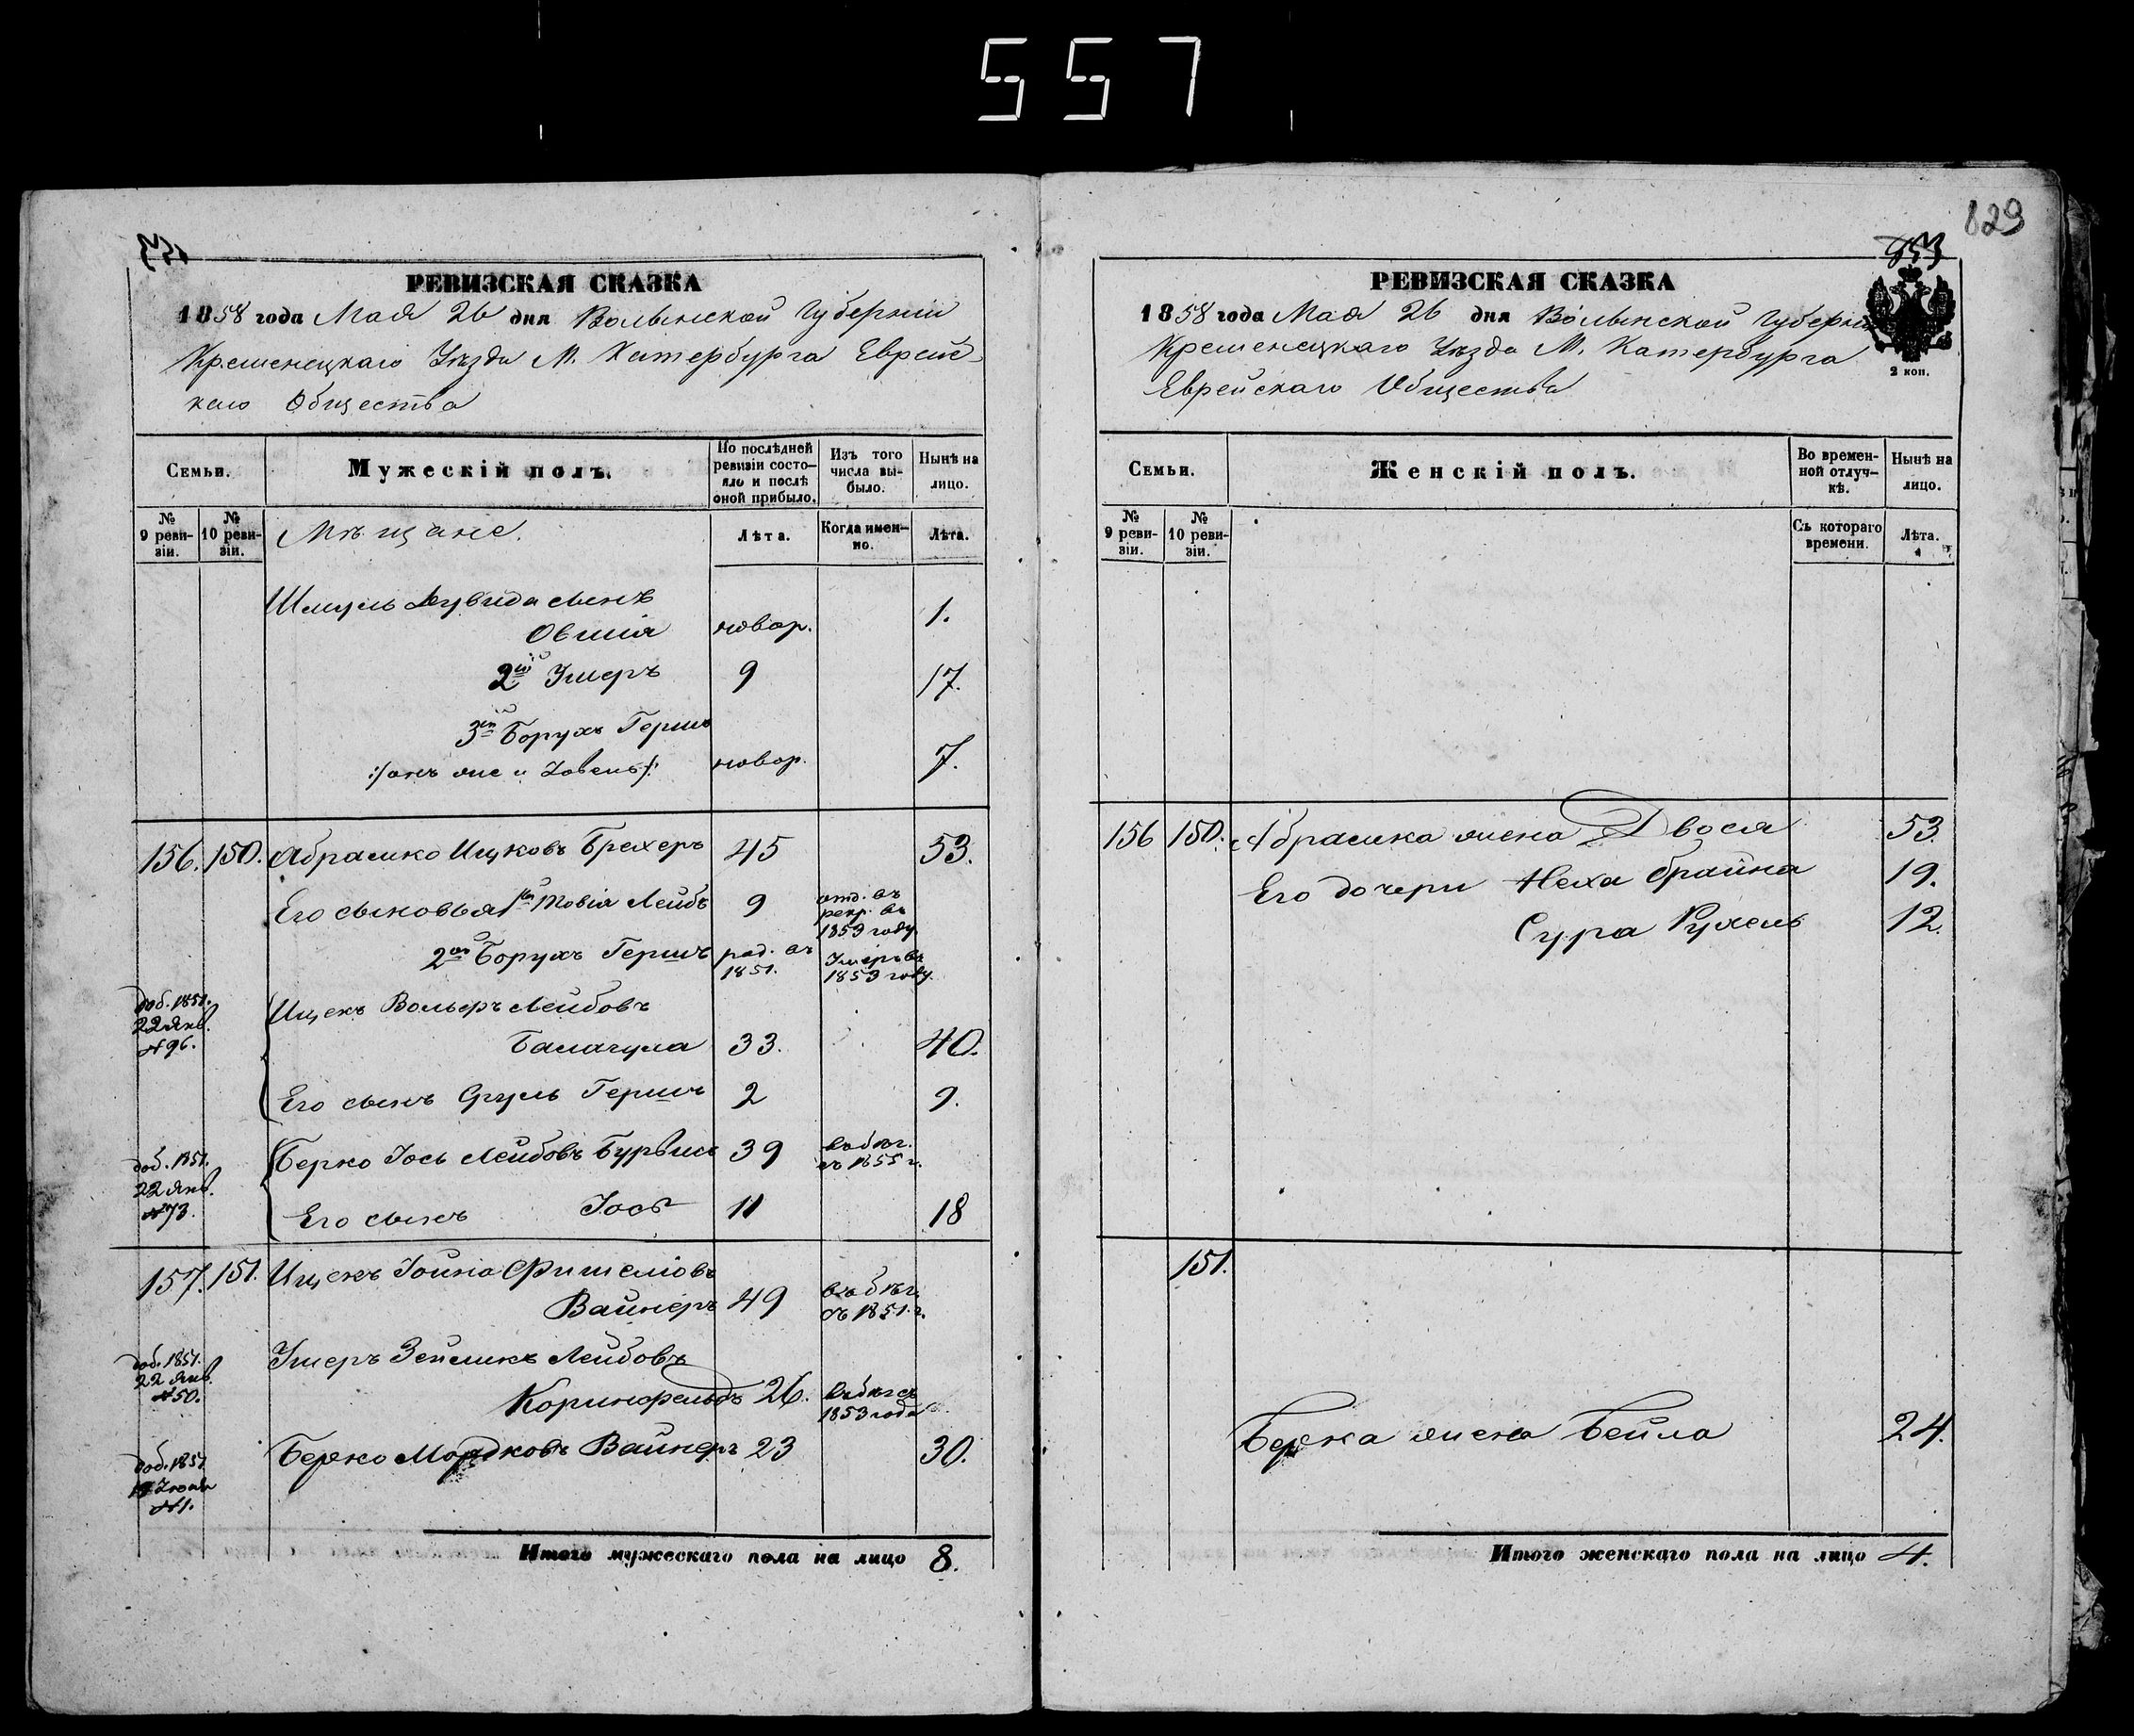 557
829
853
РЕВИЗСКАЯ СКАЗКА
1858 года Мая 26 дня Волынской Губерніи
Кременецкаго Уѣзда М. Катербурга Еврейс
каго Общества
Семьи.
Мужескій полъ.
По послѣдней ревизіи состояло и послѣ оной прибыло.
Изъ того числа выбыло.
Нынѣ на лицо.
№ 9 ревизіи.
№ 10 ревизіи.
Мѣщане.
Лѣта.
Когда именно.
Лѣта.
Шмуль Дувида сынъ
Овшія новор. 1.
2й Умеръ 9 17.
3й Борухъ Гершъ
:/онъ же и /: новор. 7.
156. 150. Абрамко Ицковъ Брехеръ 45 53.
Его сыновья 1й Товія Лейбъ 9 отд. въ рекр. въ 1853 году
2ой Борухъ Гершъ род. въ 1851. Умеръ въ 1853 году.
доб. 1851. 22 Янв. №96.
Ицекъ Вольфъ Лейбовъ
Балагула 33. 40.
Его сынъ Сруль Гершъ 2 9.
доб. 1851. 22 Янв. №73.
Берко Іось Лейбовъ 39 въ бѣг. съ 1855 г.
Его сынъ Іось 11 18
157. 151. Ицекъ Іойна Фишелiовъ
Вайнеръ 49 въ бѣг. съ 1851. г.
доб. 1851. 22 Янв. №50.
Умеръ Зейликъ Лейбовъ
Коринфельдъ 26. въ бѣг съ 1853 года
доб. 1851 №1.
Берко Мордковъ Вайнеръ 23 30.
Итого мужескаго пола на лицо 8.
РЕВИЗСКАЯ СКАЗКА
1858 года Мая 26 дня Волынской Губерніи
Кременецкаго Уѣзда М. Катербурга
Еврейскаго Общества
2 коп.
Семьи.
Женскій полъ.
Во временной отлучкѣ.
Нынѣ на лицо.
№ 9 ревизіи.
№ 10 ревизіи.
Съ котораго времени.
Лѣта.
156 150. Абрамка жена Двося 53.
Его дочери Неха Брайна 19.
Сура Рухель 12.
151.
Берка жена Бейла 24.
Итого женскаго пола на лицо 4.